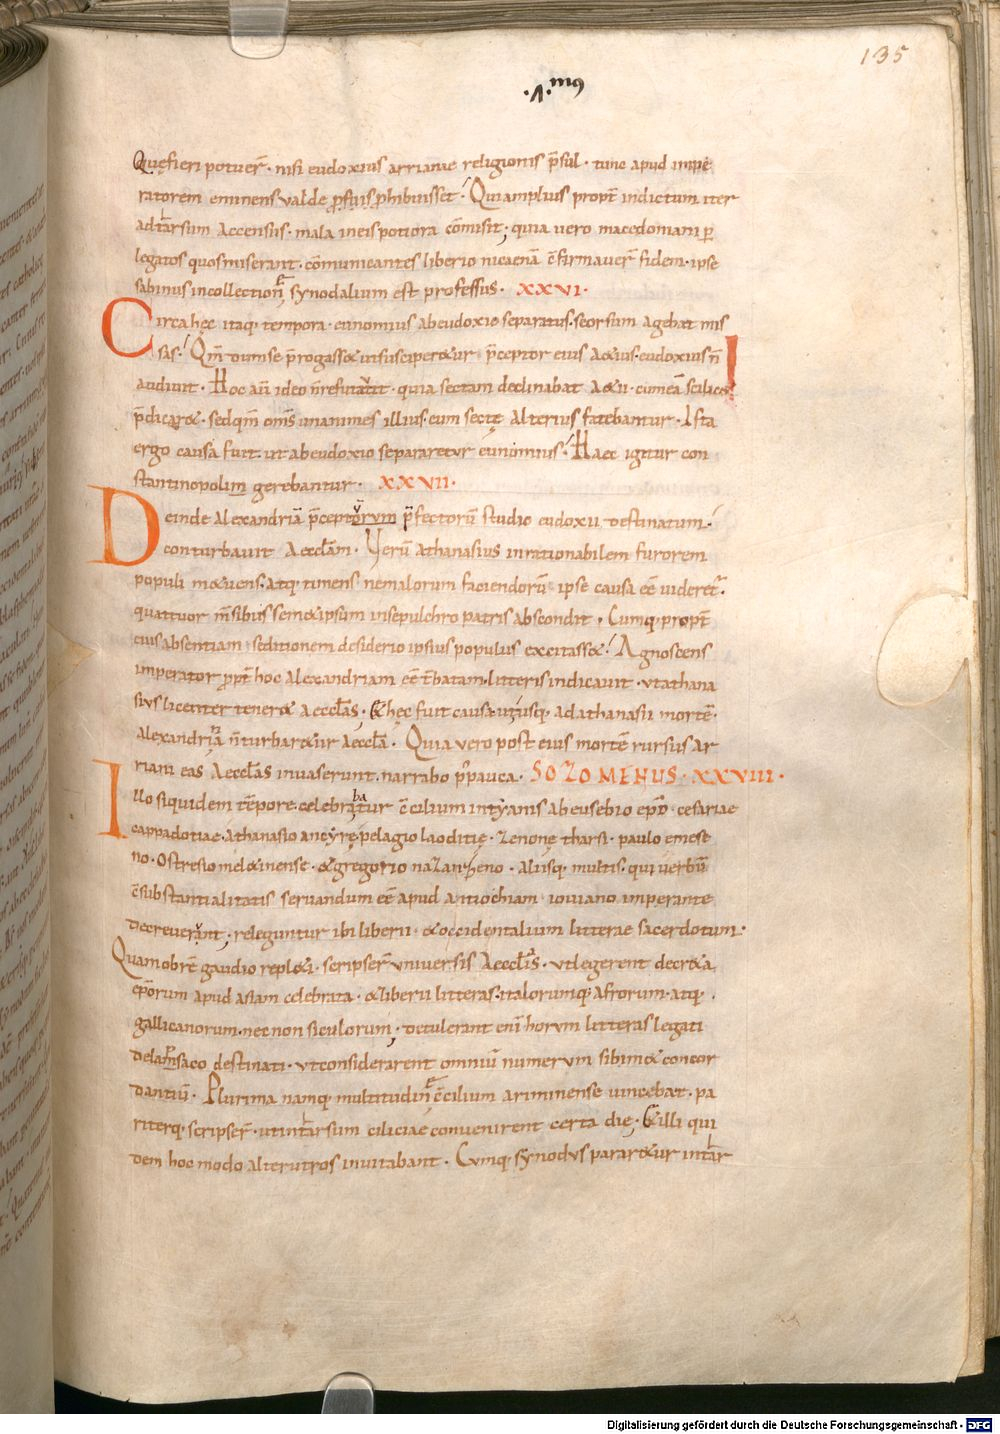 135
Quę fieri potuer̄ · nisi eudoxius arrianae religionis p̄sul · tunc apud impe
ratorem eminens valde p̱ suis ꝓhibuisset · Qui amplius propt̄ indictum iter
ad tarsum accensus · mala in eis potiora cōmisit; quia vero macedoniani ꝑ
legatos quos miserant · cōmunicantes liberio nicaenā c̄firmauer̄ fidem · ipse
sabinus in collectione synodalium est professus · XXVI ·
Circa hęc itaq; tempora · eunomius ab eudoxio separatus · seorsum agebat mis
sas · Qm̄ dum se p̄rogass& ut susciper&ur p̄ceptor eius a&ius · eudoxius n̄
audiuit · Hoc aū ideo n̄ refutauit · quia sectam declinabat a&ii · cū in eā scilic&
p̄dicar& · sed qm̄ oms̄ unanimes illius · eum sectę alterius fatebantur · Ista
ergo causa fuit · ut ab eudoxio separaretur eunomius · Haec igitur con
stantinopolim gerebantur · XXVII ·
Deinde alexandriā p̄ceptorum p̄fectorū studio eudoxii destinatum ·
conturbauit aeccl̄am · Verū athanasius inrationabilem furorem
populi m&uens · atq; timens ne malorum faciendorū ipse causa eē uideret̄ ·
quattuor m̄sibus sem&ipsum in sepulchro patris abscondit · Cumq; propt̄
eius absentiam seditionem desiderio ipsius populus excitass& · Agnoscens
imperator propt̄ hoc alexandriam eē t̄batam · litteris indicauit · ut athana
sius licenter tener& aeccl̄as · & hęc fuit causa · ut usq; ad athanasii mortē ·
alexandrina n̄ turbar&ur aeccl̄a · Quia vero post eius mortē rursus ar
riani eas aeccl̄as inuaserunt · narrabo p̄ pauca · SOZOMENUS · XXVIII ·
Illo siquidem tēpore · celebrabatur c̄cilium in tyanis ab eusebio ep̄o · cesariae
cappadotiae · athanasio ancyrę · pelagio laoditię · zenone tharsi · paulo emese
no · Ostresio mel&inense · & gregorio nazanzeno · aliisq; multis · qui uerbū
c̄substantialitatis seruandum eē apud antiochiam iouiano imperante
decreuerant; releguntur ibi liberii · & occidentalium litterae sacerdotum ·
Quamobrē gaudio repl&i · scripser̄ uniuersis aeccl̄iis · ut legerent decr&a
ep̄orum apud asiam celebrata · & liberii litteras · italorumq; afrorum · atq;
gallicanorum · nec non siculorum; detulerant eni horum litteras legati
de lamsaco destinati · ut considerarent omniū numerum sibim& concor
dantiū · Plurima namq; multitudine c̄cilium ariminense uincebat · pa
riterq; scripser̄ · ut in tarsum ciliciae convenirent certa die; & illi qui
dem hoc modo alterutros inuitabant · Cumq; synodus parar&ur in tar